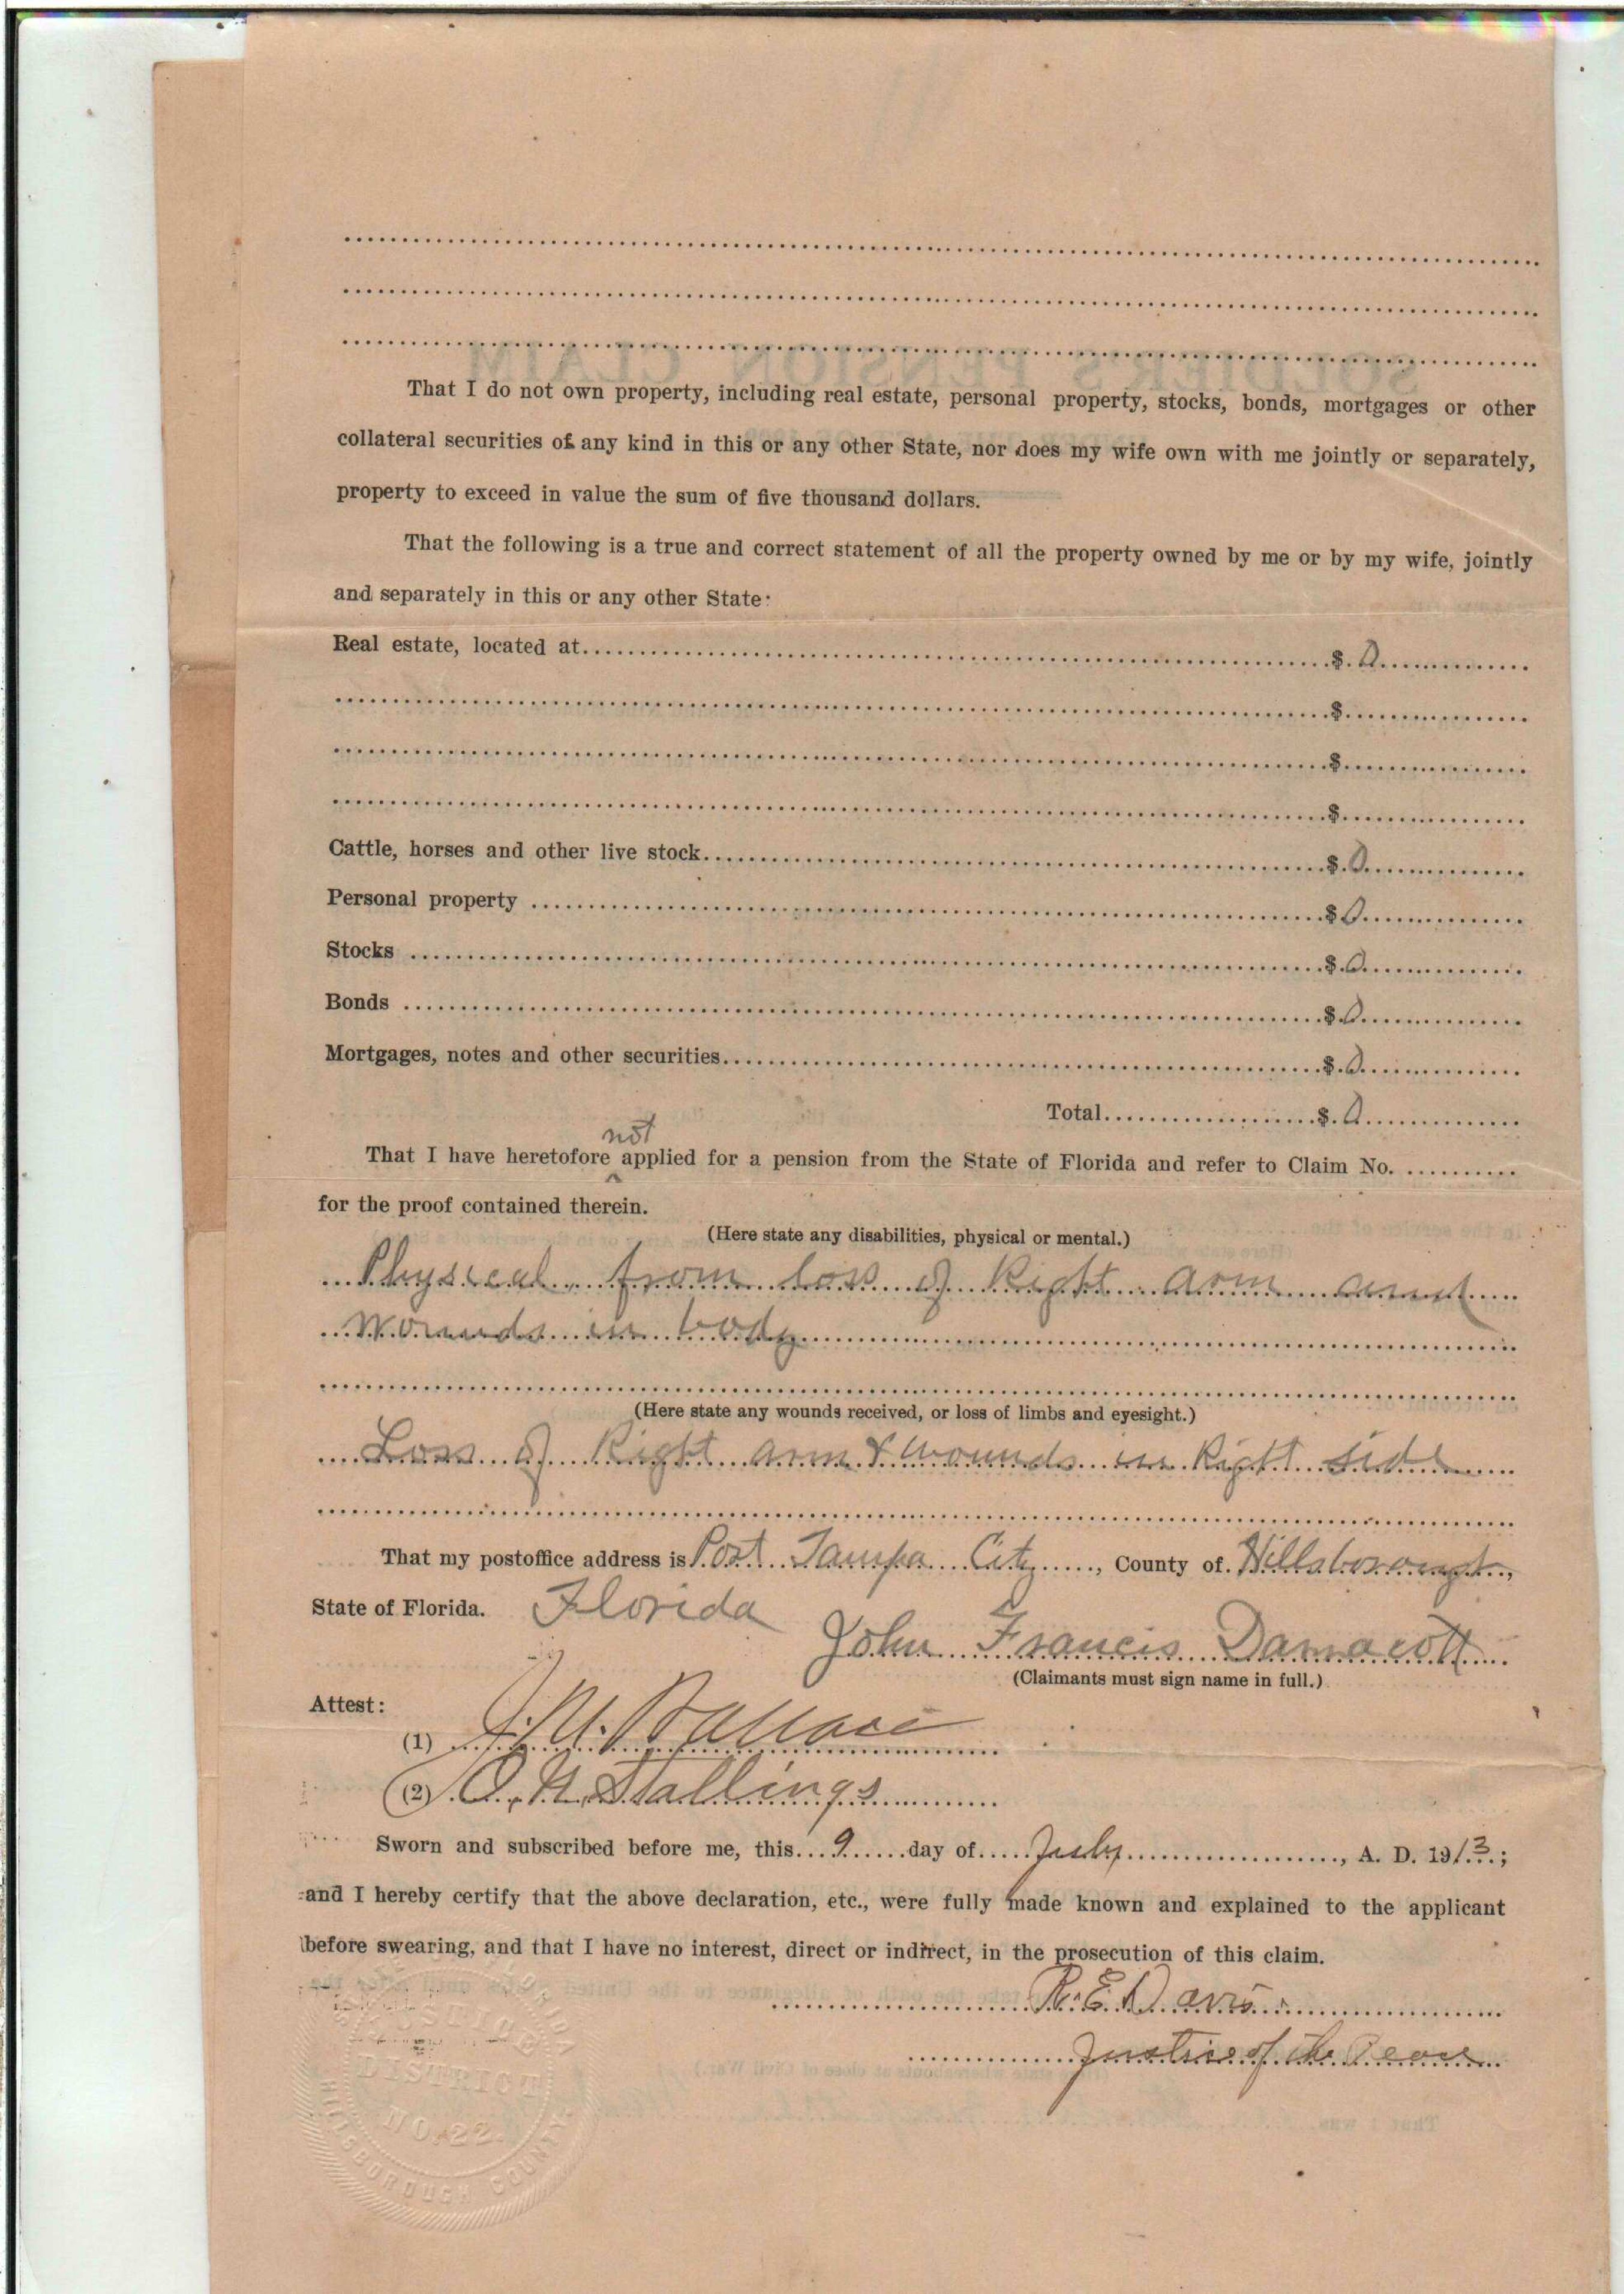 That I do not own property, including real estate, personal property, stocks, bonds, mortgages or other
collateral securities of any kind in this or any other State, nor does my wife own with me jointly or separately,
property to exceed in value the sum of five thousand dollars.
That the following is a true and correct statement of all the property owned by me or by my wife, jointly
and separately in this or any other State:
Real estate, located at $ 0
$
$
$
Cattle, horses and other live stock $ 0
Personal property $ 0
Stocks $ 0
Bonds $ 0
Mortgages, notes and other securities $ 0
Total $ 0
not
That I have heretofore ^ applied for a pension from the State of Florida and refer to Claim No.
for the proof contained therein.
(Here state any disabilities, physical or mental.)
Physical from loss of Right arm and
wounds in body
(Here state any wounds received, or loss of limbs and eyesight.)
Loss of Right arm & wounds in Right side
That my postoffice address is Port Tampa City, County of Hillsborough,
State of Florida. Florida
John Francis Damacott
(Claimants must sign name in full.)
Attest:
(1) Wallace
(2) O. N. Stallings
Sworn and subscribed before me, this 9 day of July, A. D. 1913;
and I hereby certify that the above declaration, etc., were fully made known and explained to the applicant
before swearing, and that I have no interest, direct or indirect, in the prosecution of this claim.
R. E. Davis
Justice of the Peace
JUSTICE
DISTRICT
NO. 22.
HILLSBOROUGH COUNTY